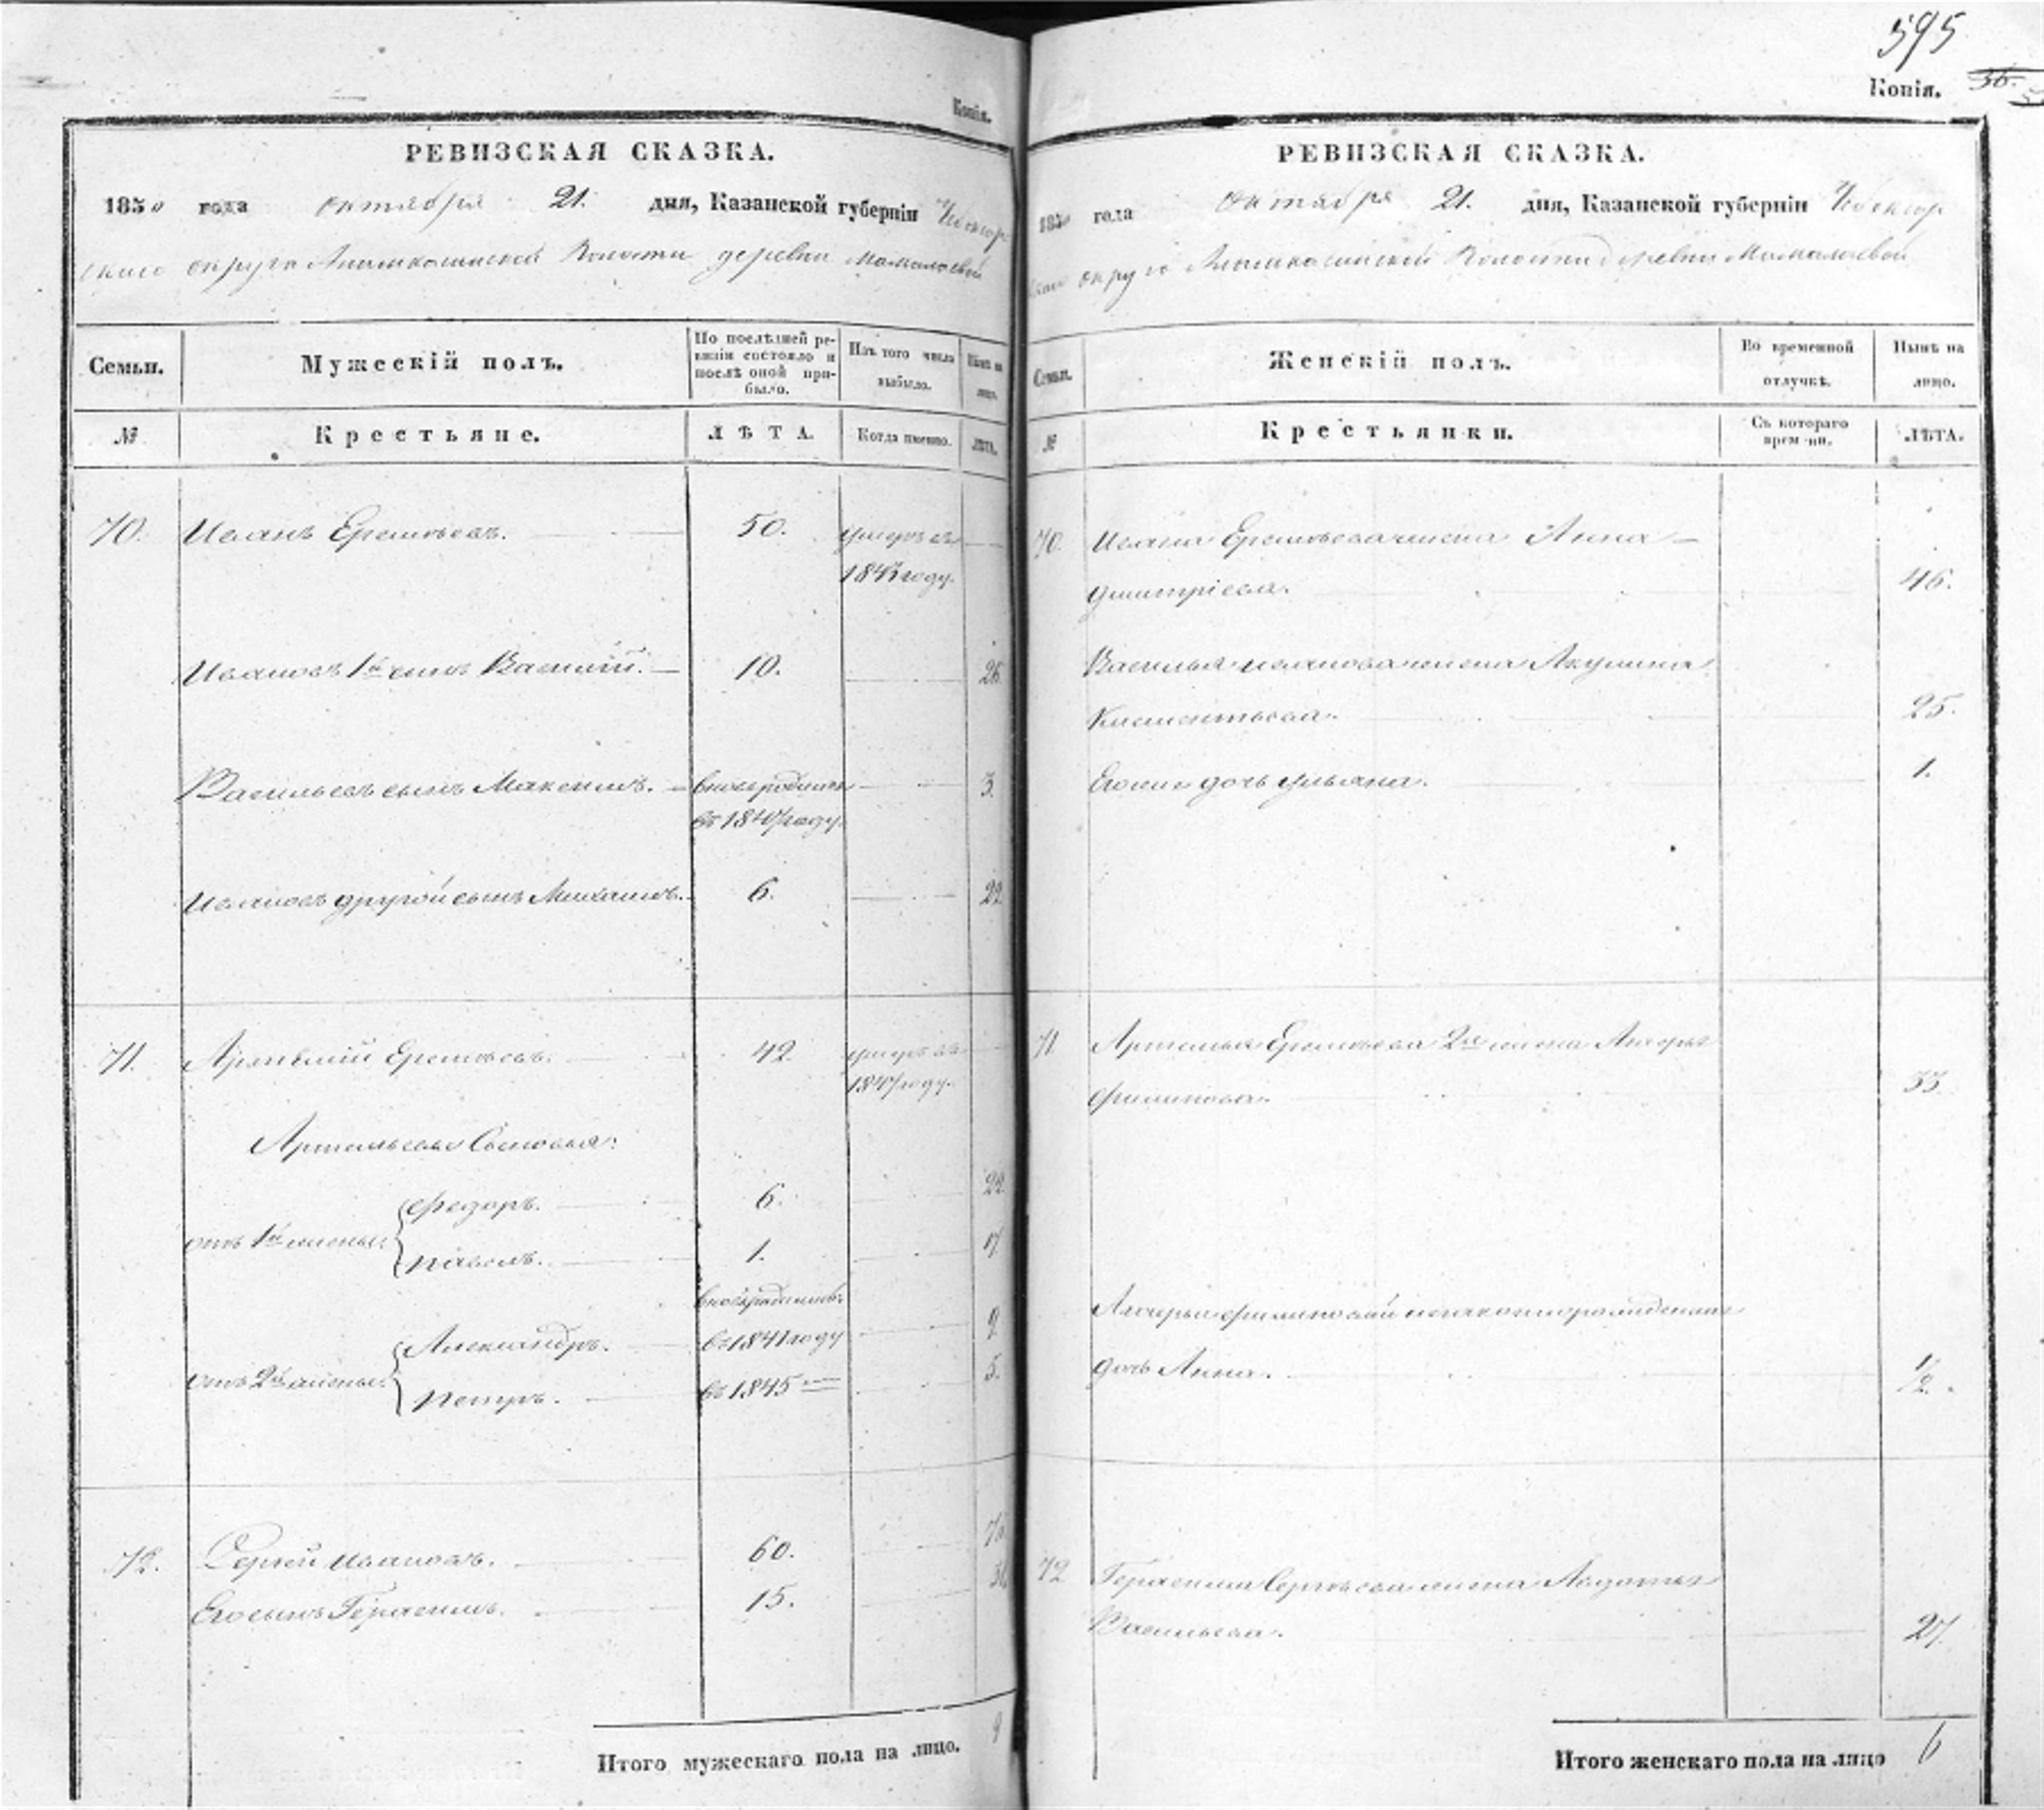 Копія.
РЕВИЗСКАЯ СКАЗКА.
1850 года октября 21. дня, Казанской губерніи Чебоксар
скаго округа волости деревни
Семьи.
Мужескій полъ.
По послѣдней ре-
визіи состояло и
послѣ оной при-
было.
Изъ того числа
выбыло.
Нынѣ на
лицо.
№
Крестьяне.
ЛѢТА.
Когда именно.
ЛѢТА.
70. Иванъ Еремѣевъ. 50. умеръ въ
году.
Ивановъ 1й сынъ Василій. 10. 26.
Васильевъ сынъ Максимъ. вновь рожденъ 3.
въ 1847 году.
Ивановъ другой сынъ Михаилъ. 6. 22.
71. Артемій Еремѣевъ. 42. умеръ въ
1847 году.
Артемьевы Сыновья:
Федоръ. 6. 22.
отъ 1й жены:
Павелъ. 1. 17.
вновь рожденъ
Александръ. въ 1841 году 9.
отъ 2й жены:
Петръ. въ 1845 5.
72. Сергей Ивановъ. 60. 76.
Его сынъ Герасимъ. 15. 31.
Итого мужескаго пола на лицо. 9
595
Копія.
РЕВИЗСКАЯ СКАЗКА.
1850 года октября 21. дня, Казанской губерніи Чебоксар
скаго округа волости деревни
Семьи.
Женскій полъ.
Во временной
отлучкѣ.
Нынѣ на
лицо.
№
Крестьянки.
Съ котораго
времени.
ЛѢТА.
70. Ивана Еремѣева жена Анна
Дмитріева. 46.
Василья Иванова жена Акулина
Климентьева. 25.
дочь Ульяна. 1.
71 Артемья Еремѣева 2я жена
Филипова. 33
Филиповой
дочь Анна. 1/2.
72 Герасима Сергѣева жена Авдотья
Васильева. 27.
Итого женскаго пола на лицо 6